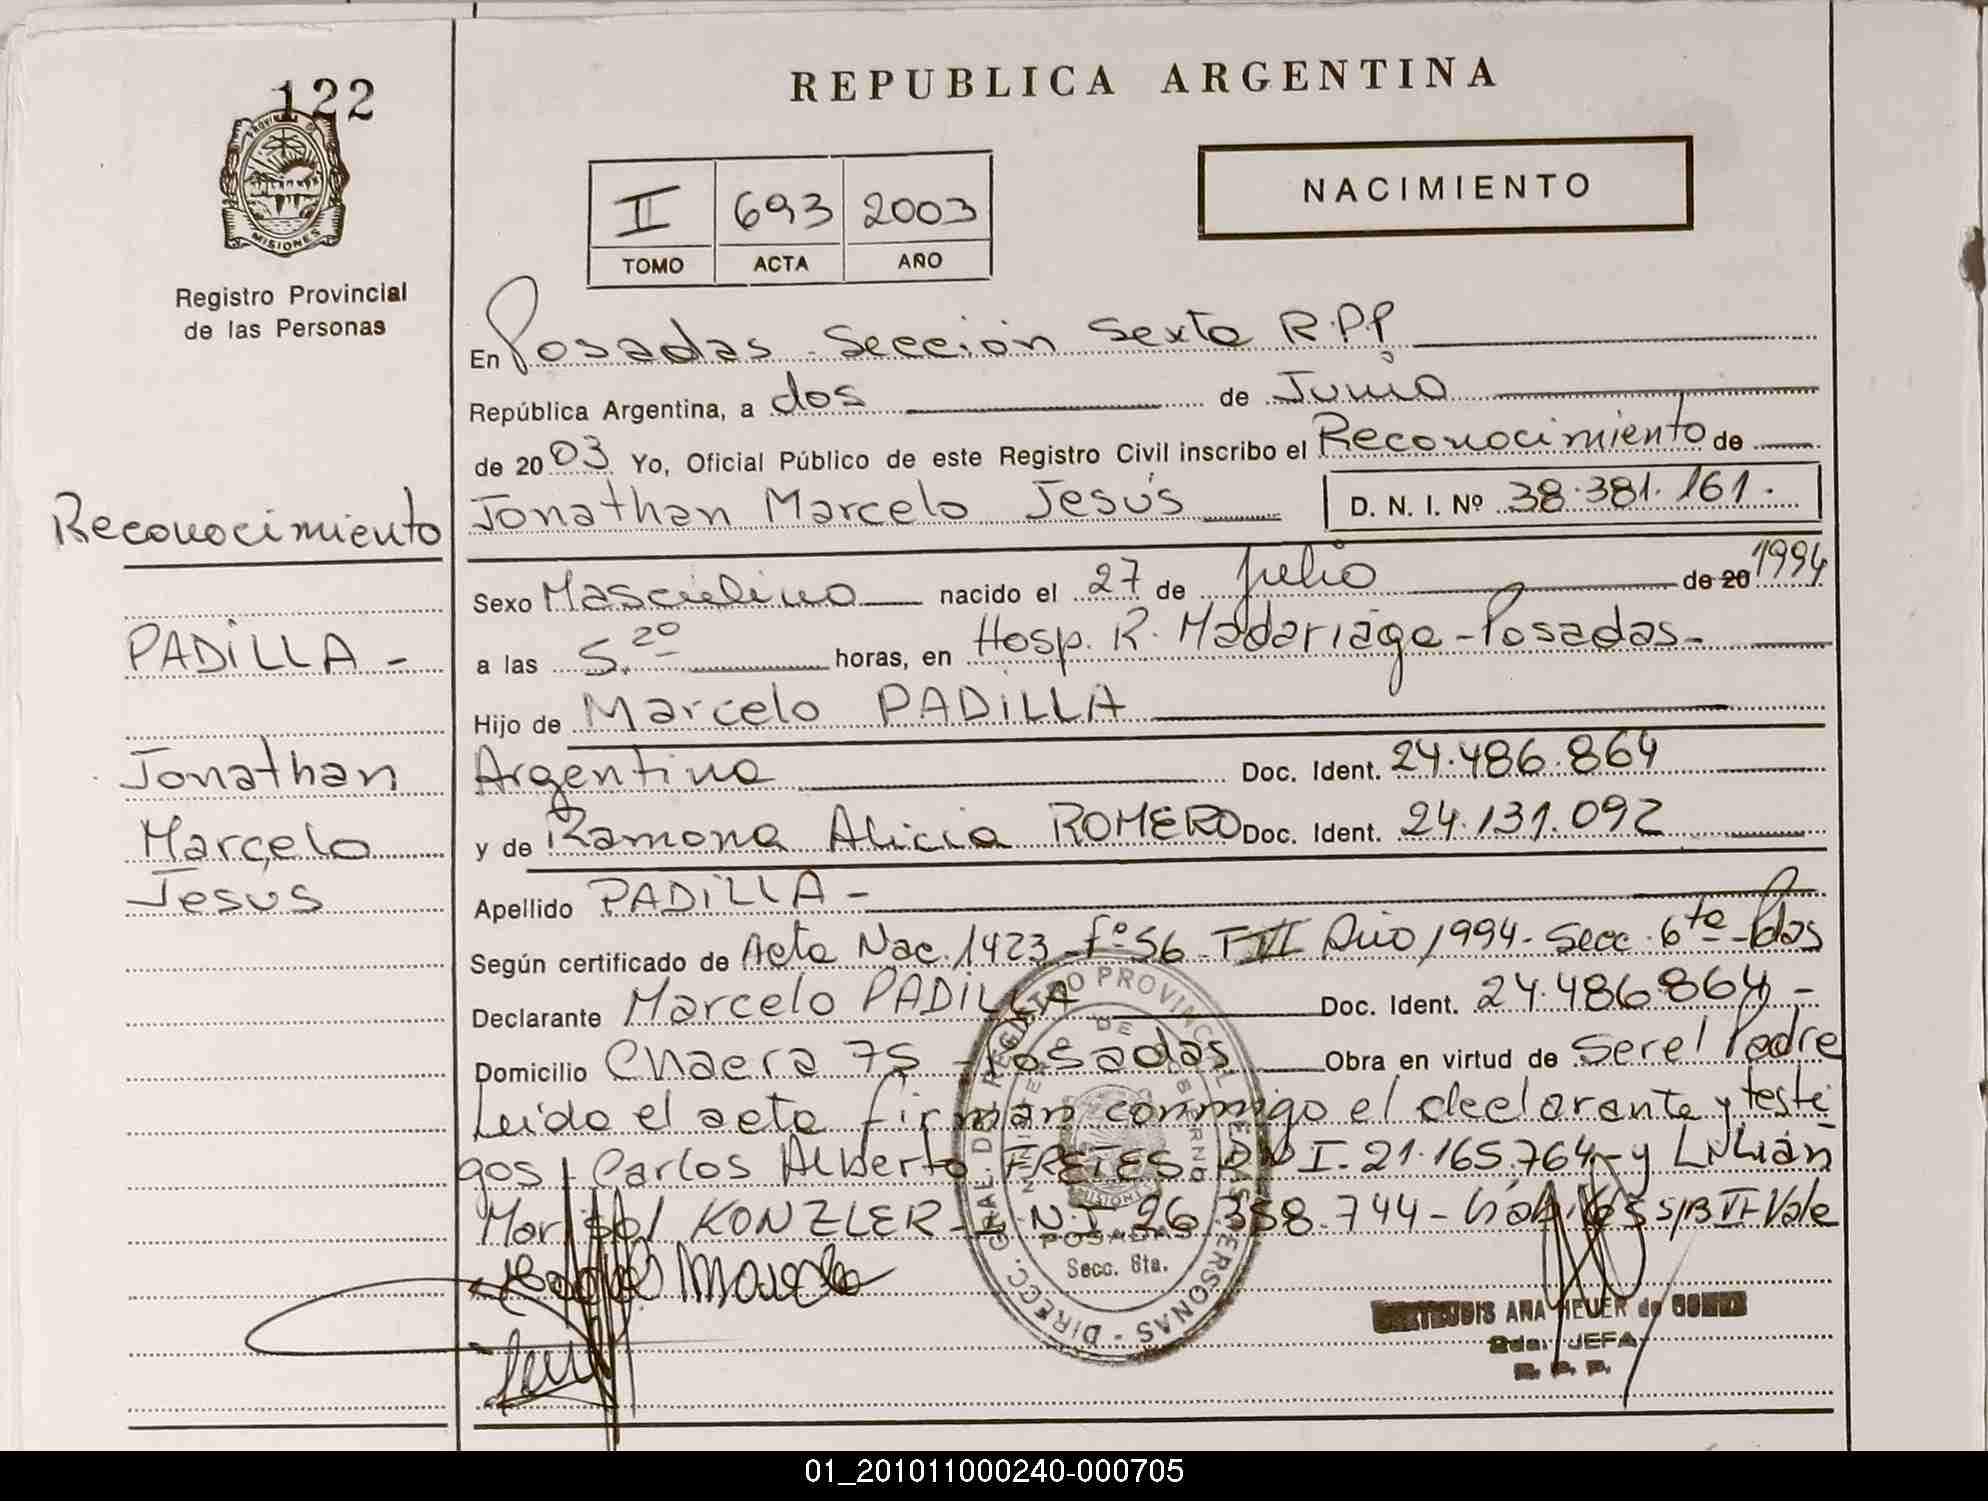 122
PROVINCIA D
MISIONES
Registro Provincial
de las Personas
REPUBLICA ARGENTINA
II 693 2003
TOMO ACTA AÑO
NACIMIENTO
En Posadas - Sección Sexta R.P.P
República Argentina, a dos de Junio
de 2003 Yo, Oficial Público de este Registro Civil inscribo el Reconocimiento de
Jonathan Marcelo Jesús D. N. I. Nº 38.381.161.
Sexo Masculino nacido el 27 de Julio de 20 1994
a las 5.20 horas, en Hosp. R. Madariaga - Posadas -
Hijo de Marcelo PADiLLA
Argentina Doc. Ident. 24.486.864
y de Ramona Alicia ROMERO Doc. Ident. 24.131.092
Apellido PADiLLA -
Según certificado de Acta Nac. 1423 - Fº 56 - T VI Año 1994 - Secc. 6ta - Pdas
Declarante Marcelo PADiLLA Doc. Ident. 24.486.864 -
Domicilio Chacra 75 - Posadas Obra en virtud de Ser el Padre
Leído el acta firman conmigo el declarante y testi
gos Carlos Alberto FREiTES DNI - 21.165.764 - y LiLián
Marisol KONZLER - D.N.I 26.358.744 - s/B VI - Vale
Reconocimiento
PADiLLA -
Jonathan
Marcelo
Jesus
DIRECC. GRAL. DEL REGISTRO PROVINCIAL DE LAS PERSONAS
MINISTERIO DE GOBIERNO
MISIONES
POSADAS
Secc. 6ta.
ANA HEUER de
2da. JEFA
R. P. P.
01_201011000240-000705